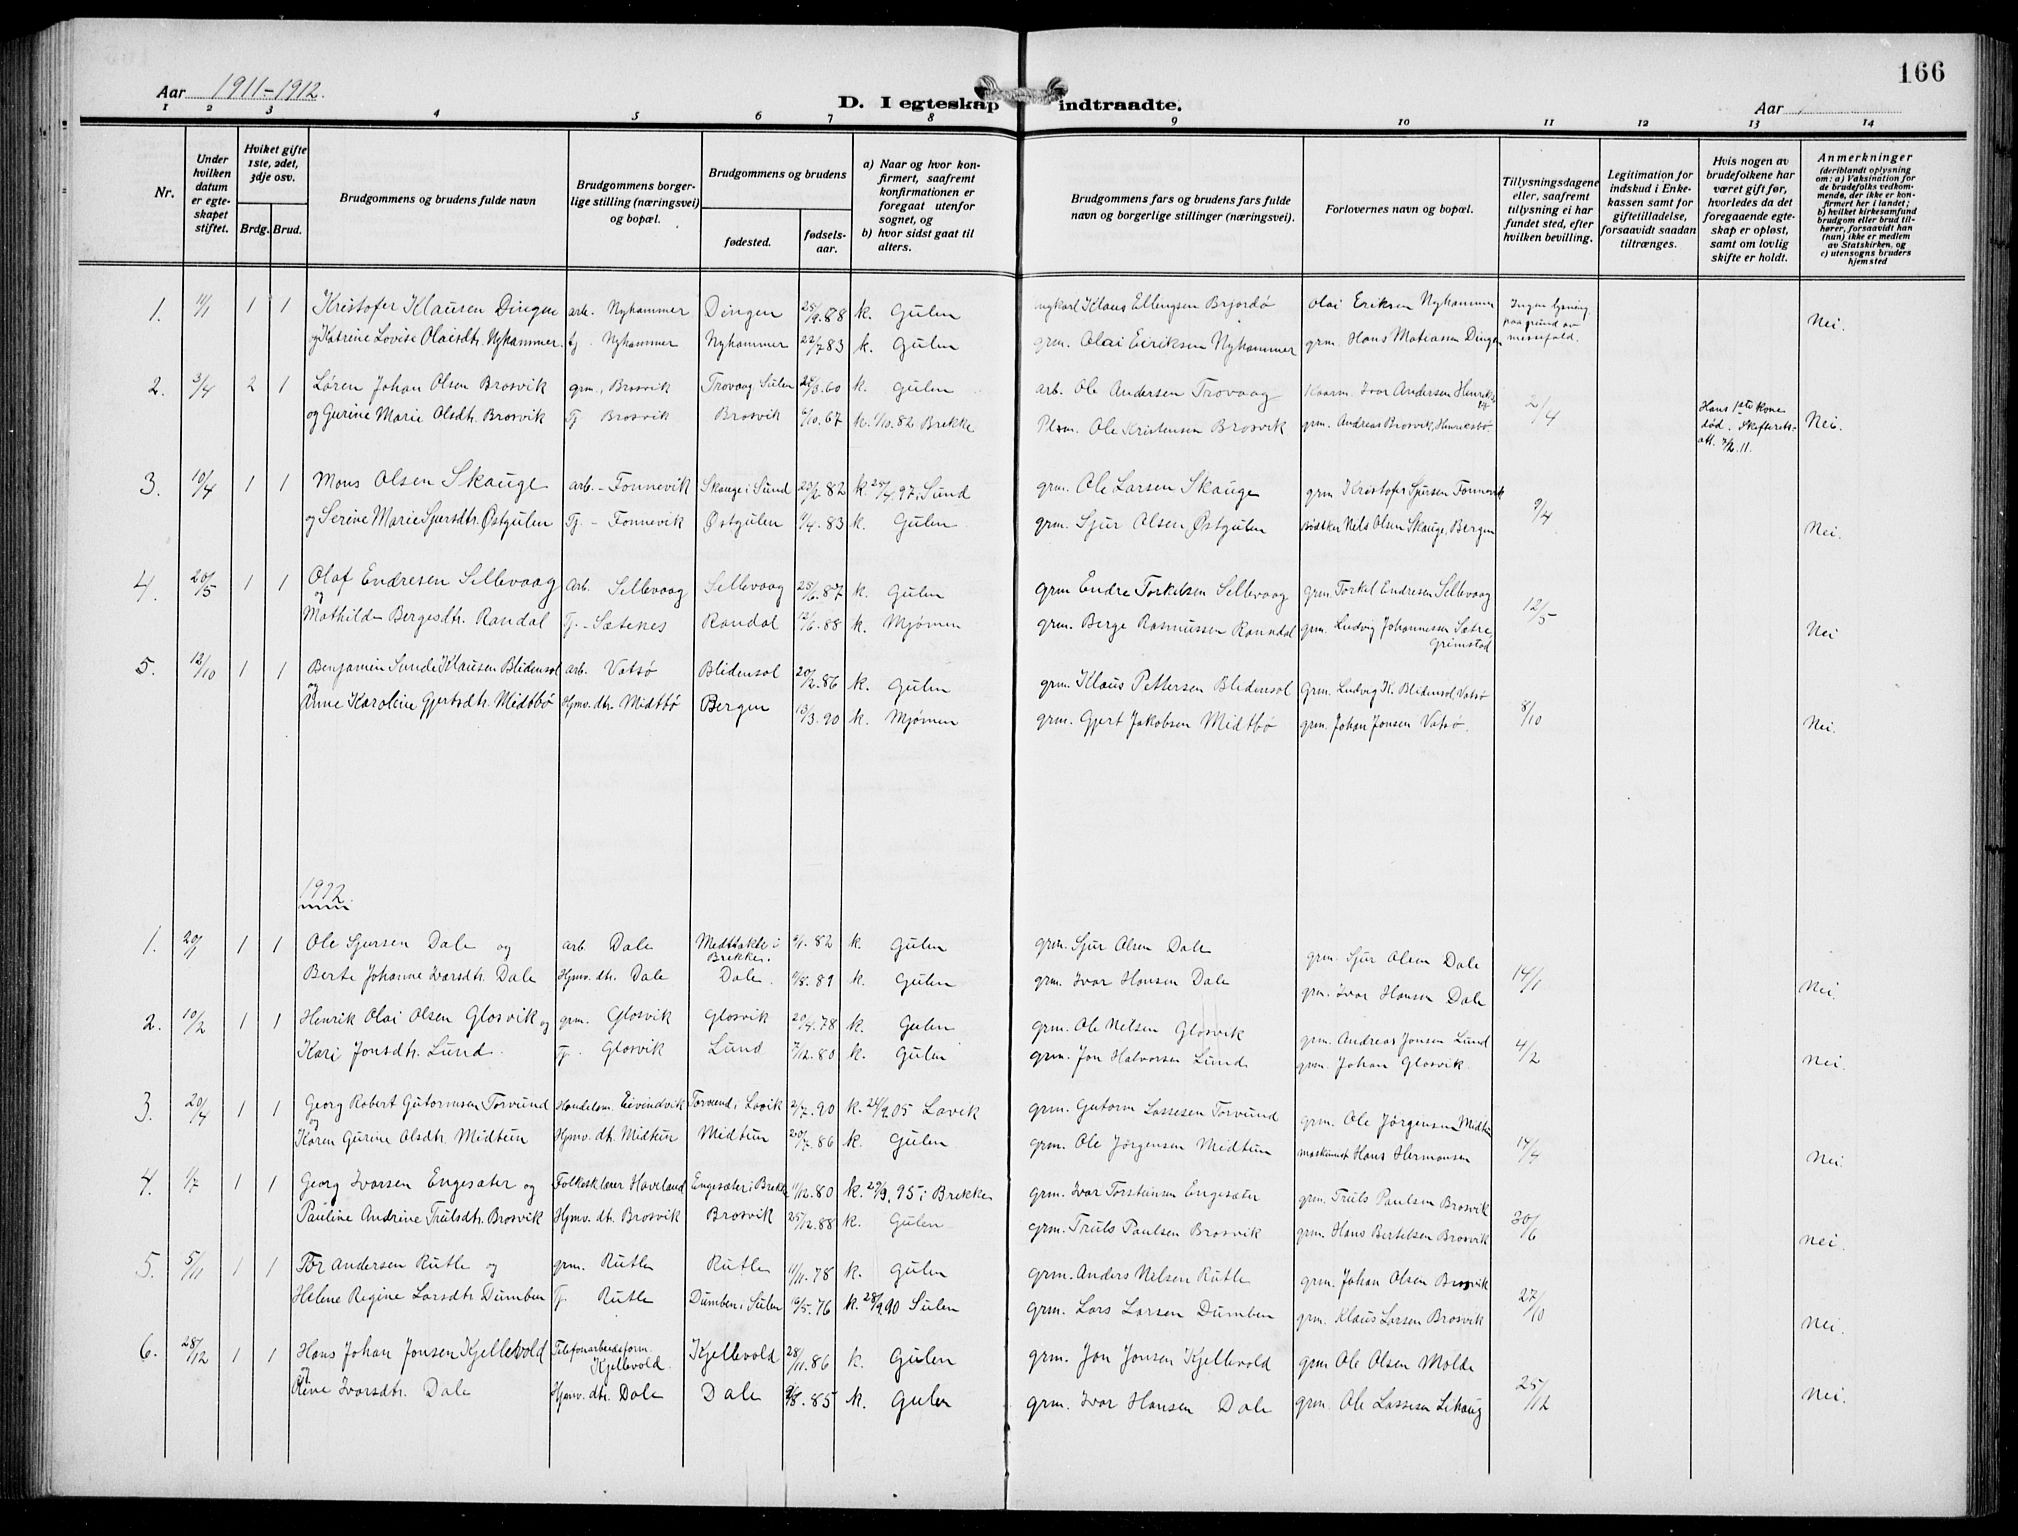 166
Aar 1911-1912.
D. I egteskap indtraadte.
Aar
1 2 3 4 5 6 7 8 9 10 11 12 13 14
Nr.
Under hvilken datum er egteskapet stiftet.
Hviket gifte 1ste, 2det, 3dje osv.
Brdg. Brud.
Brudgommens og brudens fulde navn
Brudgommens borgerlige stilling (næringsvei) og bopæl.
Brudgommens og brudens
fødested.
fødselsaar.
a) Naar og hvor konfirmert, saafremt konfirmationen er foregaat utenfor sognet, og
b) hvor sidst gaat til alters.
Brudgommens fars og brudens fars fulde navn og borgerlige stillinger (næringsvei).
Forlovernes navn og bopæl.
Tillysningsdagene eller, saafremt tillysning ei har fundet sted, efter hvilken bevilling.
Legitimation for indskud i Enkekassen samt for giftetilladelse, forsaavidt saadan tiltrænges.
Hvis nogen av brudefolkene har været gift før, hvorledes da det foregaaende egteskap er opløst, samt om lovlig skifte er holdt.
Anmerkninger (deriblandt oplysning om: a) Vaksination for de brudefolks vedkommende, der ikke er konfirmert her i landet; b) hvilket kirkesamfund brudgom eller brud tilhører, forsaavidt han (hun) ikke er medlem av Statskirken, og c) utensogns bruders hjemsted
1. 11/1 1 1 Kristofer Klausen Dingen arb. Nyhammer Dingen 28/9.88 k. Gulen ungkarl Klaus Ellingsen Brjordø Olai Eriksen Nyhammer Ingen lysning paa grund av messefald. Nei.
og Katrine Lovise Olaisdtr. Nyhammer. tj. Nyhammer Nyhammer 22/7 83 k. Gulen grm. Olai Eiriksen Nyhammer grm. Hans Matiassen Dingen
2. 3/4 2 1 Søren Johan Olsen Brosvik grm., Brosvik Trovaag Sulen 28/3.60 k. Gulen arb. Ole Andersen Trovaag Kaarm. Ivar Andersen Henriksbø 2/4 Hans 1ste kone død. Skifteretsatt. 3/2.11. Nei.
og Gurine Marie Olsdtr. Brosvik Tj. Brosvik Brosvik 6/10.67 k. 1/10.82 Brekke Plsm. Ole Kristensen Brosvik grm. Andreas Brosvik, Henriksbø
3. 10/4 1 1 Mons Olsen Skauge arb. - Fonnevik Skauge i Sund 23/2 82 k. 25/4.97, Sund grm. Ole Larsen Skauge grm Kristofer Sjursen Fonnevik 9/4 Nei.
og Serine Marie Sjursdtr. Østgulen Tj. - Fonnevik Østgulen 1/4. 83 k. Gulen grm. Sjur Olsen Østgulen bødtker Nels Olsen Skauge, Bergen
4. 20/5 1 1 Olaf Endresen Sellevaag Arb. Sellevaag Sellevaag 25/6.87 k. Gulen grm Endre Torkelsen Sellevaag grm. Torkel Endresen Sellevaag 12/5 Nei
og Mathilde Bergesdtr. Randal Tj. - Sætenes Randal 12/6.88 k. Mjømen grm. Berge Rasmussen Ranndal grm. Ludvig Johannessen Sætre, Grimstad
5. 12/10 1 1 Benjamin Sunde Klausen Blidensol arb. Vatsø Blidensol 20/2.86 k. Gulen grm. Klaus Pettersen Blidensol Grm. Ludvig K. Blidensol Vatsø 8/10 Nei.
og Anne Karoline Gjertsdtr. Midtbø Hjmv. dtr. Midtbø Bergen 13/3.90 k. Mjømen grm. Gjert Jakobsen Midtbø grm. Johan Jonsen Vatsø.
1912.
1. 20/1 1 1 Ole Sjursen Dale og arb. Dale Medttakle i Brekke. 6/1. 82 k Gulen grm. Sjur Olsen Dale grm. Sjur Olsen Dale 14/1 Nei.
Berte Johanne Ivarsdtr. Dale Hjmv. dtr. Dale Dale. 11/8. 89 k. Gulen grm. Ivar Hansen Dale grm. Ivar Hansen Dale
2. 10/2 1 1 Henrik Olai Olsen Glosvik og grm. Glosvik Glosvik 20/4.78 k. Gulen grm. Ole Nelsen Glosvik grm. Andreas Jonsen Lund 4/2 Nei.
Kari Jonsdtr. Lund. Tj. Glosvik Lund 7/12.80 k. Gulen grm. Jon Halvorsen Lund grm. Johan Glosvik.
3. 20/4 1 1 Georg Robert Gutormsen Torvund Handelsm. Eivindvik Torvund i Lavik 2/7.90 k. 24/9.05 Lavik grm. Gutorm Lassesen Torvund grm. Ole Jørgensen Midtun 14/4 Nei.
og Karen Gurine Olsdtr. Midtun Hjmv. dtr. Midtun Midtun 20/7.86 k. Gulen grm. Ole Jørgensen Midtun maskinist Hans Hermansen
4. 1/7 1 1 Georg Ivarsen Engesæter og Folkesklærer Haveland Engesæter i Brekke 11/12.80 k. 29/9.95 i Brekke grm. Ivar Torstensen Engesæter grm. Truls Paulsen Brosvik 30/6 Nei.
Pauline Andrine Trulsdtr. Brosvik Hjmv. dtr. Brosvik Brosvik 25/12.88 k. Gulen grm. Truls Paulsen Brosvik grm. Hans Bertelsen Brosvik
5. 5/11 1 1 Tor Andersen Rutle og grm. Rutle Rutle 11/11.78 k. Gulen grm. Anders Nilsen Rutle grm. Johan Olsen Brosvik 27/10 Nei.
Helene Regine Larsdtr. Dumben Tj. Rutle Dumben i Sulen 19/5.76 k. 28/9.90 Sulen grm. Lars Larsen Dumben grm. Klaus Larsen Brosvik
6. 28/12 1 1 Hans Johan Jonsen Kjellevold Telefonarbeidsform. Kjellevold Kjellevold 28/11.86 k. Gulen grm. Jon Jonsen Kjellevold grm. Ole Olsen Molde 25/12 Nei.
og Ivarsdtr. Dale Hjmv. dtr. Dale Dale 9/8.85 k. Gulen grm. Ivar Hansen Dale grm. Ole Lassesen Lihaug